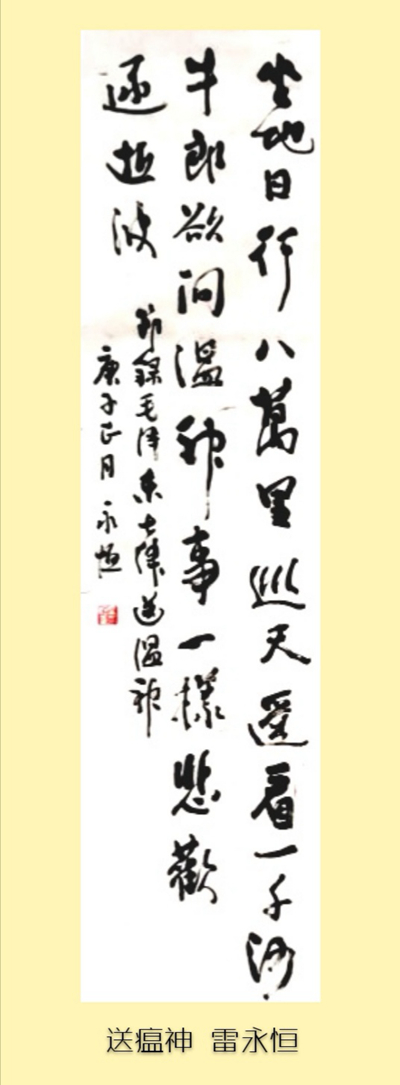 坐地日行八萬里巡天遥看一千河
牛郎欲问温神事一樣悲歡
逐逝波
节録毛泽东七律送温神
庚子正月永恒
送瘟神 雷永恒